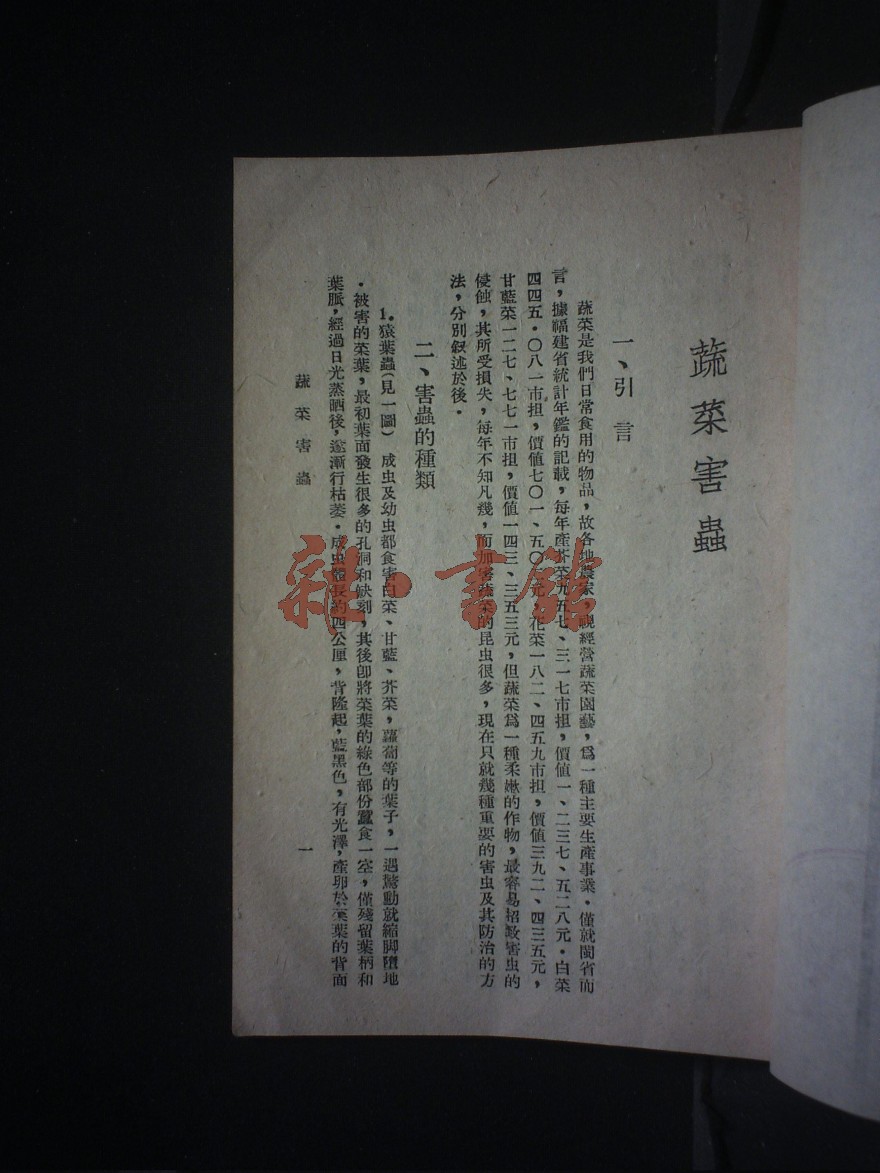 蔬菜害蟲
一、引言
蔬菜是我們日常食用的物品，故各地農家，視經營蔬菜園藝，爲一種主要生產事業．僅就閩省而
言，據福建省統計年鑑的記載，每年產芥菜九五七、三一七市担，價值一、二三七、五二八元．白菜
四四五．〇八一市担，價值七〇一、五〇元，花菜一八二、四五九市担，價值三九二、四三五元，
甘藍菜一二七、七七一市担，價值一四三、三五三元，但蔬菜爲一種柔嫩的作物，最容易招致害虫的
侵蝕，其所受損失，每年不知凡幾，而加害蔬菜的昆虫很多，現在只就幾種重要的害虫及其防治的方
法，分別叙述於後．
二、害蟲的種類
1．猿葉蟲（見一圖） 成虫及幼虫都食害白菜、甘藍、芥菜，蘿蔔等的葉子，一遇驚動就縮脚墮地
．被害的菜葉，最初葉面發生很多的孔洞和缺刻，其後卽將菜葉的綠色部份蠶食一空，僅殘留葉柄和
葉脈，經過日光蒸晒後，逐漸行枯萎．成虫體長約四公厘，背隆起，藍黑色，有光澤，產卵於菜葉的背面
蔬菜害蟲
一
雜·書館